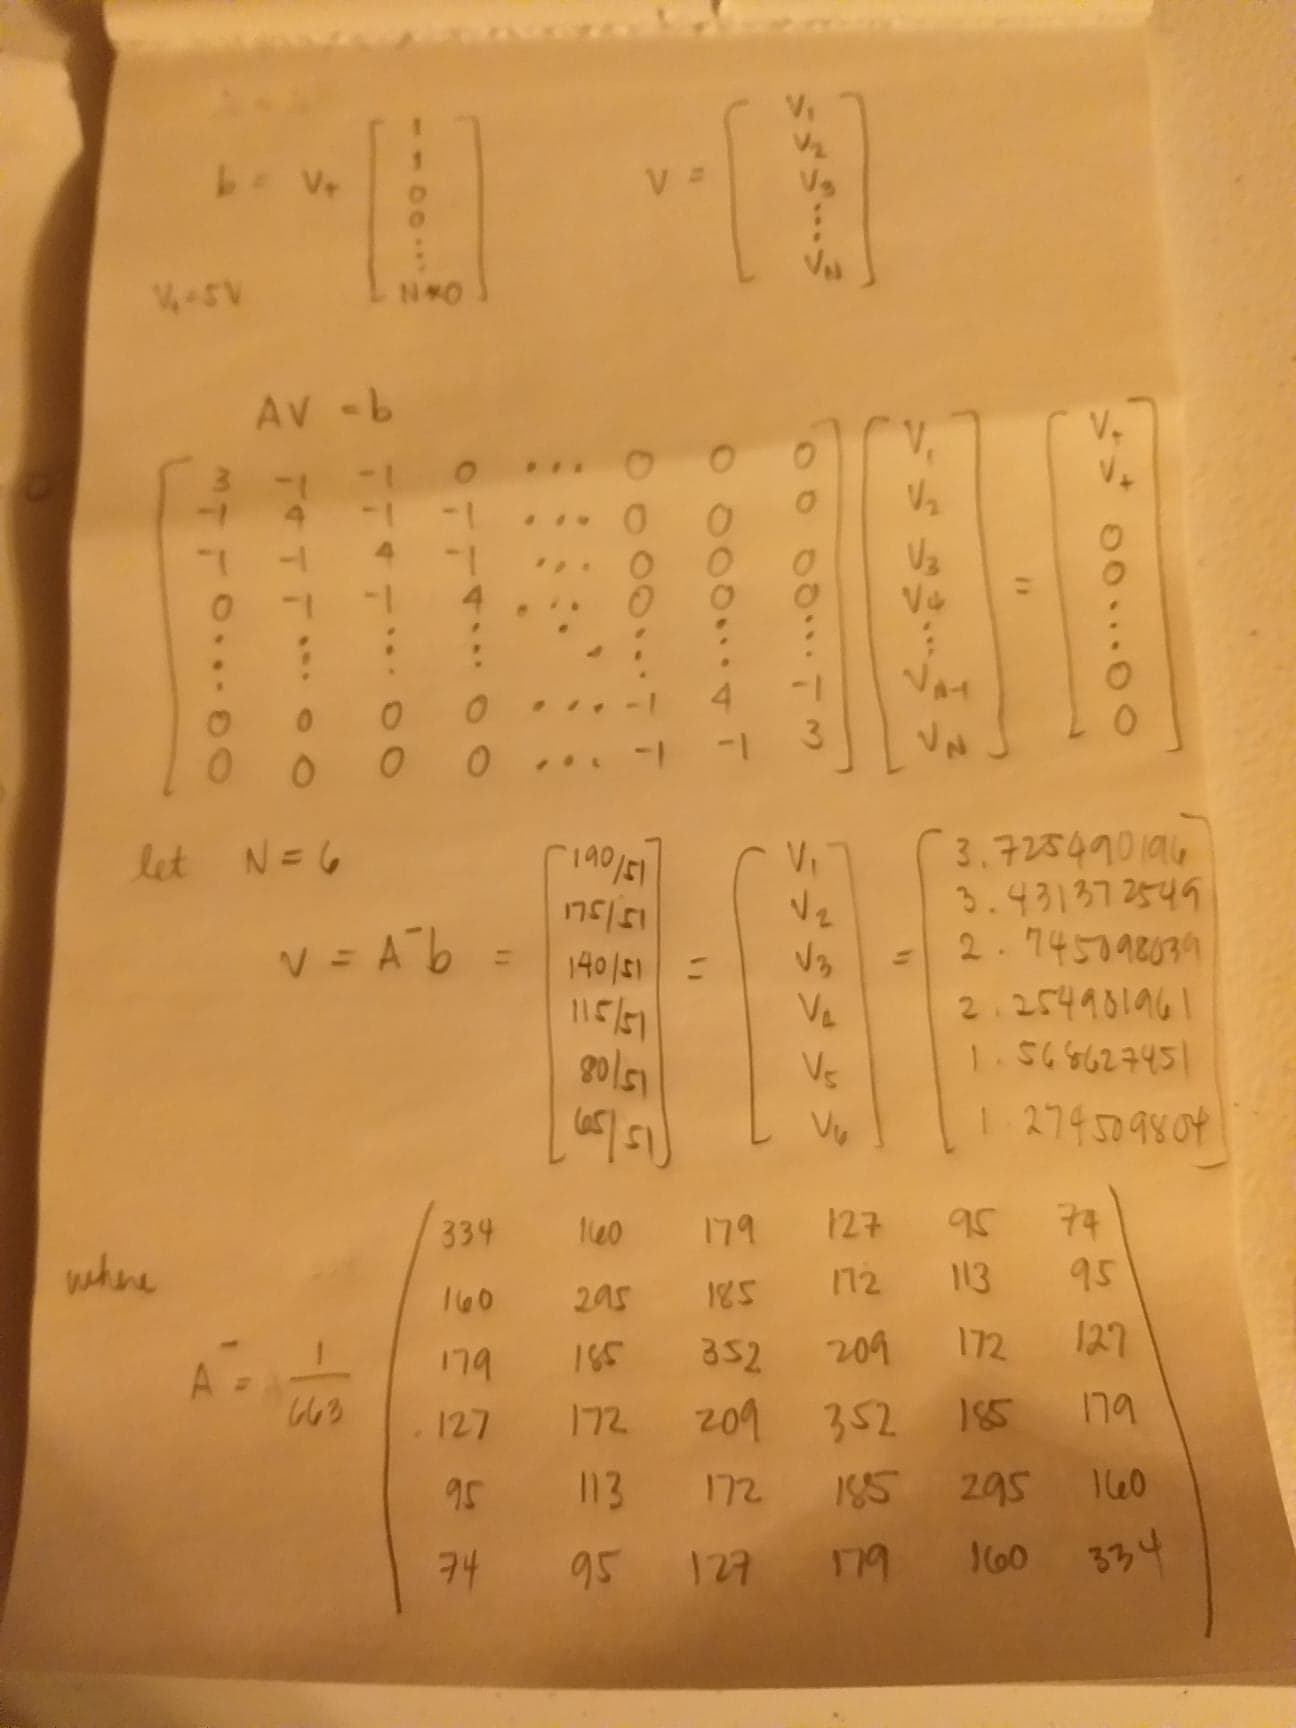 b = V+ [ 1 1 0 0 ⋮ N*0 ]
V = [ V1 V2 V3 ⋮ VN ]
V+ = 5V
AV = b
3 -1 -1 0 ... 0 0 0
-1 4 -1 -1 ... 0 0 0
-1 -1 4 -1 ... 0 0 0
0 -1 -1 4 ... 0 0 0
⋮ ⋮ ⋮ ⋮ ⋱ ⋮ ⋮ ⋮
0 0 0 0 ... -1 4 -1
0 0 0 0 ... -1 -1 3
[ V1 V2 V3 V4 ⋮ VN-1 VN ] = [ V+ V+ 0 0 ⋮ 0 0 ]
let N = 6
V = A⁻b = [ 190/51 175/51 140/51 115/51 80/51 65/51 ] = [ V1 V2 V3 V4 V5 V6 ] = [ 3.725490196 3.431372549 2.745098039 2.254901961 1.568627451 1.274509804 ]
where
A⁻ = 1/663
334 160 179 127 95 74
160 295 185 172 113 95
179 185 352 209 172 127
127 172 209 352 185 179
95 113 172 185 295 160
74 95 127 179 160 334